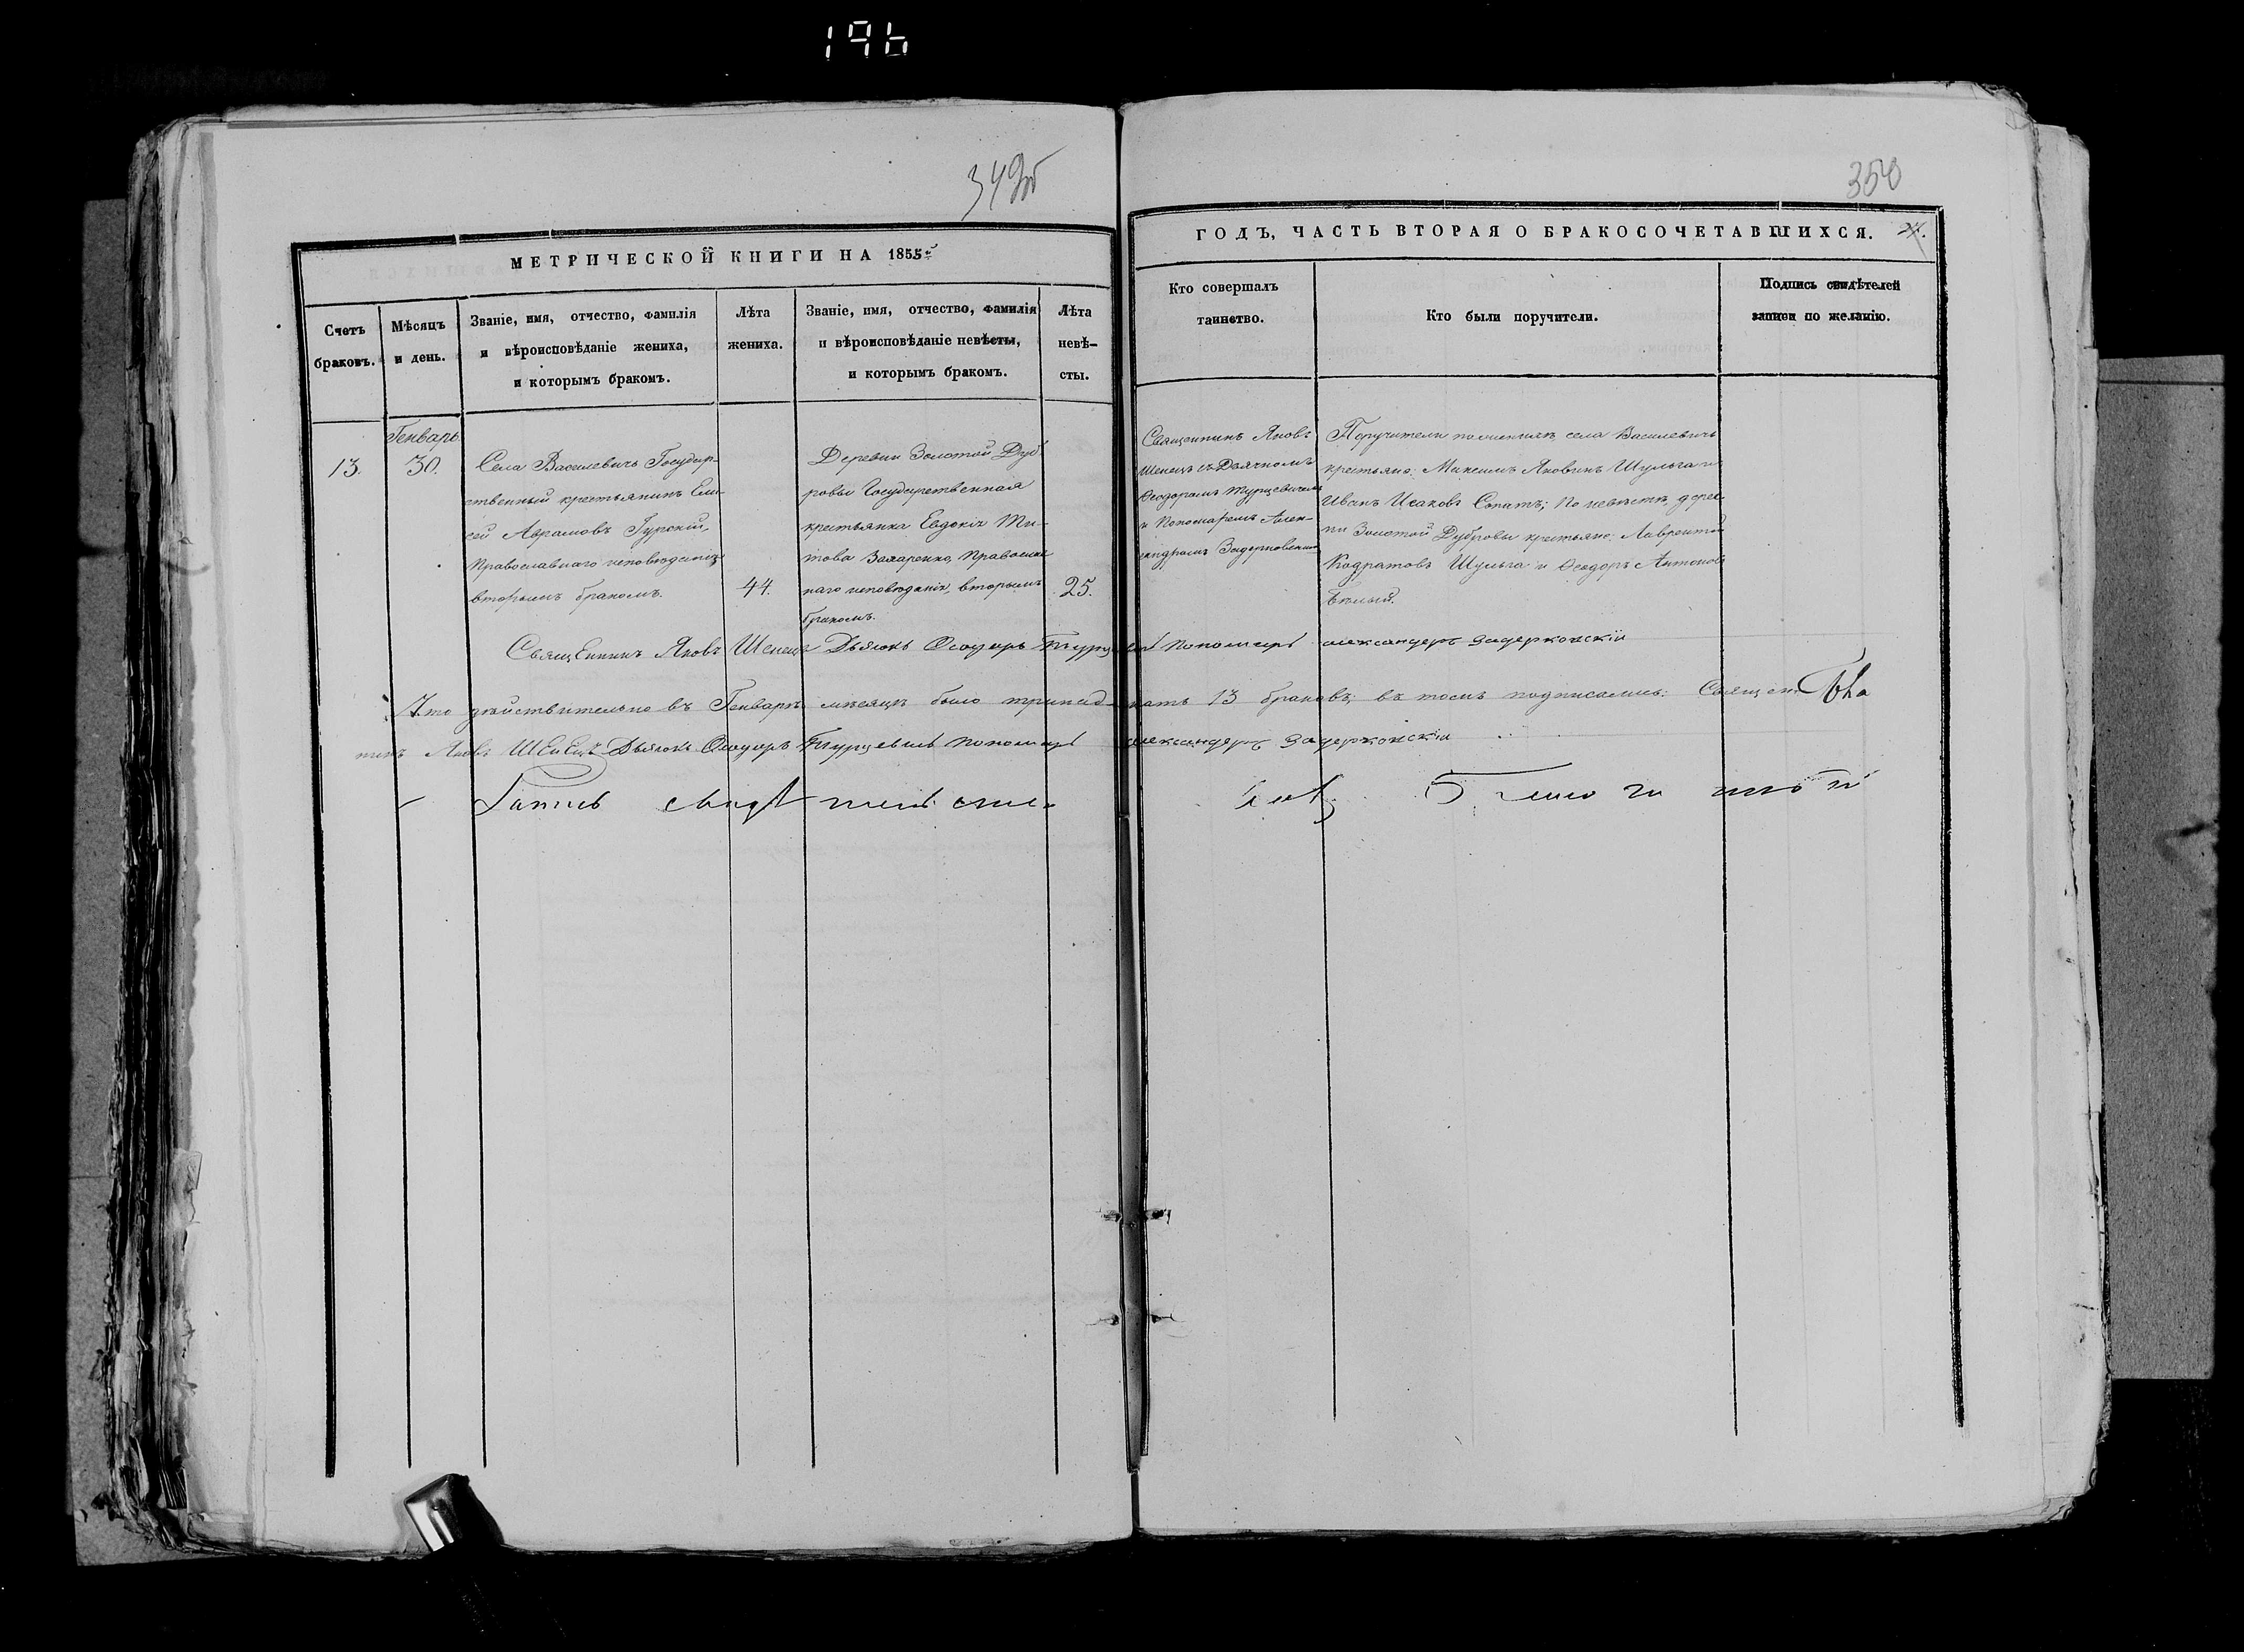 196
349об
350
МЕТРИЧЕСКОЙ КНИГИ НА 1855й
ГОДЪ, ЧАСТЬ ВТОРАЯ О БРАКОСОЧЕТАВШИХСЯ.
Счетъ
браковъ.
Мѣсяцъ
и день.
Званіе, имя, отчество, фамилія
и вѣроисповѣданіе жениха,
и которымъ бракомъ.
Лѣта
жениха.
Званіе, имя, отчество, фамилія
и вѣроисповѣданіе невѣсты,
и которымъ бракомъ.
Лѣта
невѣ-
сты.
Кто совершалъ
таинство.
Кто были поручители.
Подпись свидѣтелей
записи по желанію.
13.
Генварь
30.
Села Василевичъ Государ-
ственный крестьянинъ Ели-
сей Аврамовъ Гурскій,
Православнаго исповѣданія
вторымъ бракомъ.
44.
Деревни Золотой Дуб-
ровы Государственная
крестьянка Евдокія Ти-
това Захаренко, Православ
наго исповѣданія, вторымъ
бракомъ.
25.
Священникъ Яковъ
Шенецъ съ Дьячкомъ
Ѳеодоромъ Турцевичемъ
и Пономаремъ Алек-
сандромъ Задерковскимъ
Поручители по женихѣ села Василевичъ
крестьяне: Максимъ Яковинъ Шульга и
Иванъ Исаковъ; По невѣстѣ, дерев-
ни Золотой Дубровы крестьяне: Лаврентій
Кодратовъ Шульга и Ѳеодоръ Антоновъ
Бѣлый.
Священникъ Яковъ Шенецъ Дьячокъ Ѳеодоръ Пономарь александеръ Задерковскій
Что дѣйствительно въ Генварѣ мѣсяцѣ было тринад-цать 13 браковъ; въ томъ подписались: Священ-
никъ Яковъ Шенецъ Дьячокъ Ѳеодоръ Турцевичъ Пономарь александеръ Задерковскій